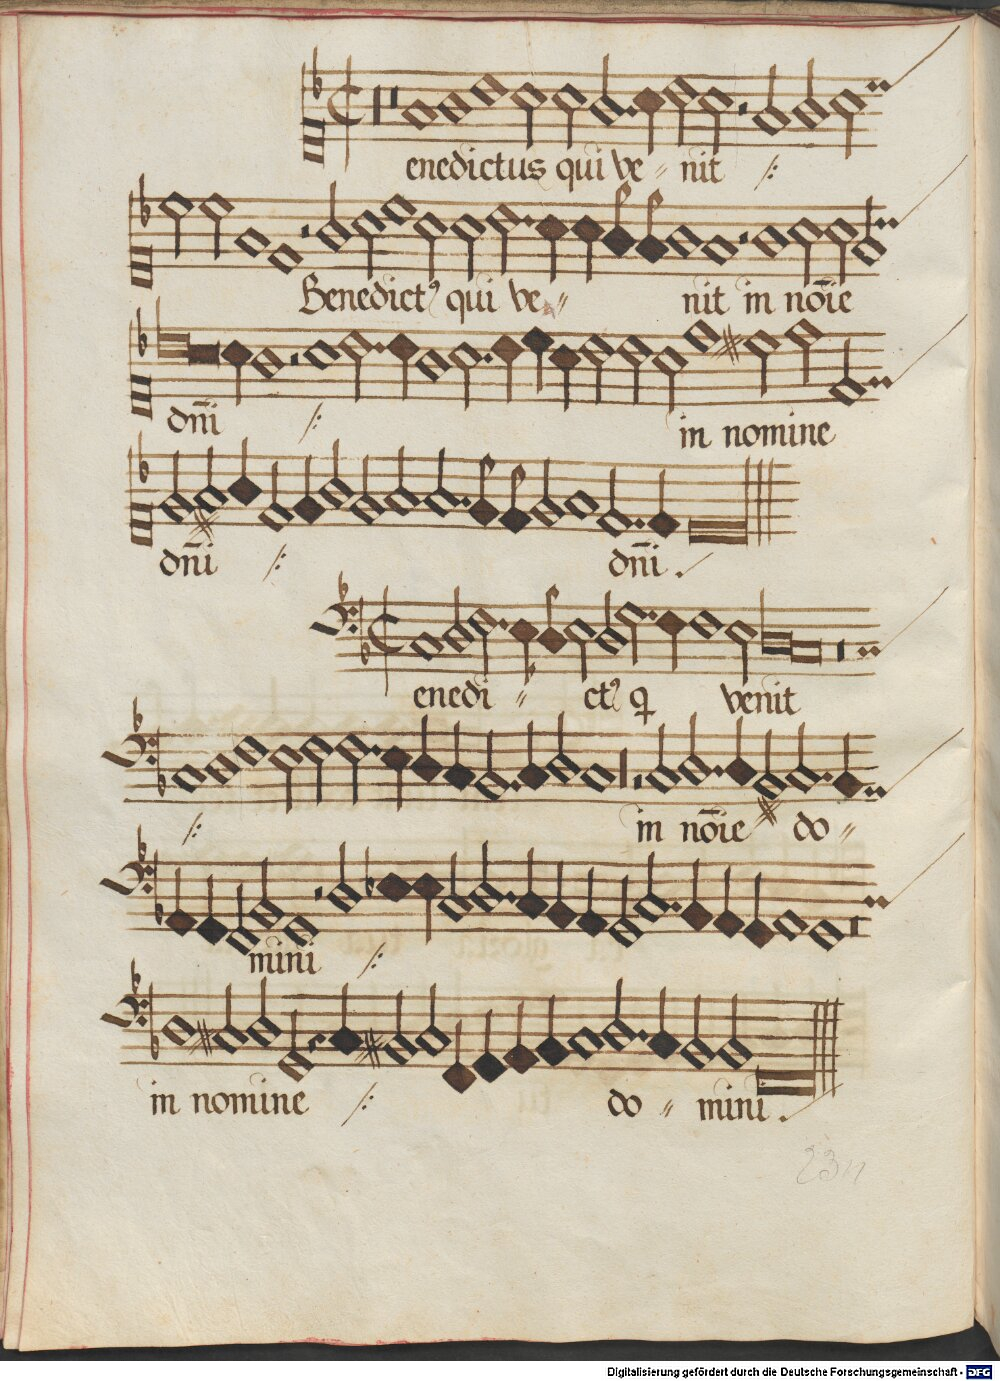 enedictus qui ve〃 nit :/:
Benedictꝰ qui ve〃 nit in nōie
dn̄i :/: in nomine
dn̄i :/: dn̄i.
enedi〃 ctꝰ q venit
:/: in nōie do〃
mini :/:
in nomine :/: do〃 mini.
Digitalisierung gefördert durch die Deutsche Forschungsgemeinschaft - DFG